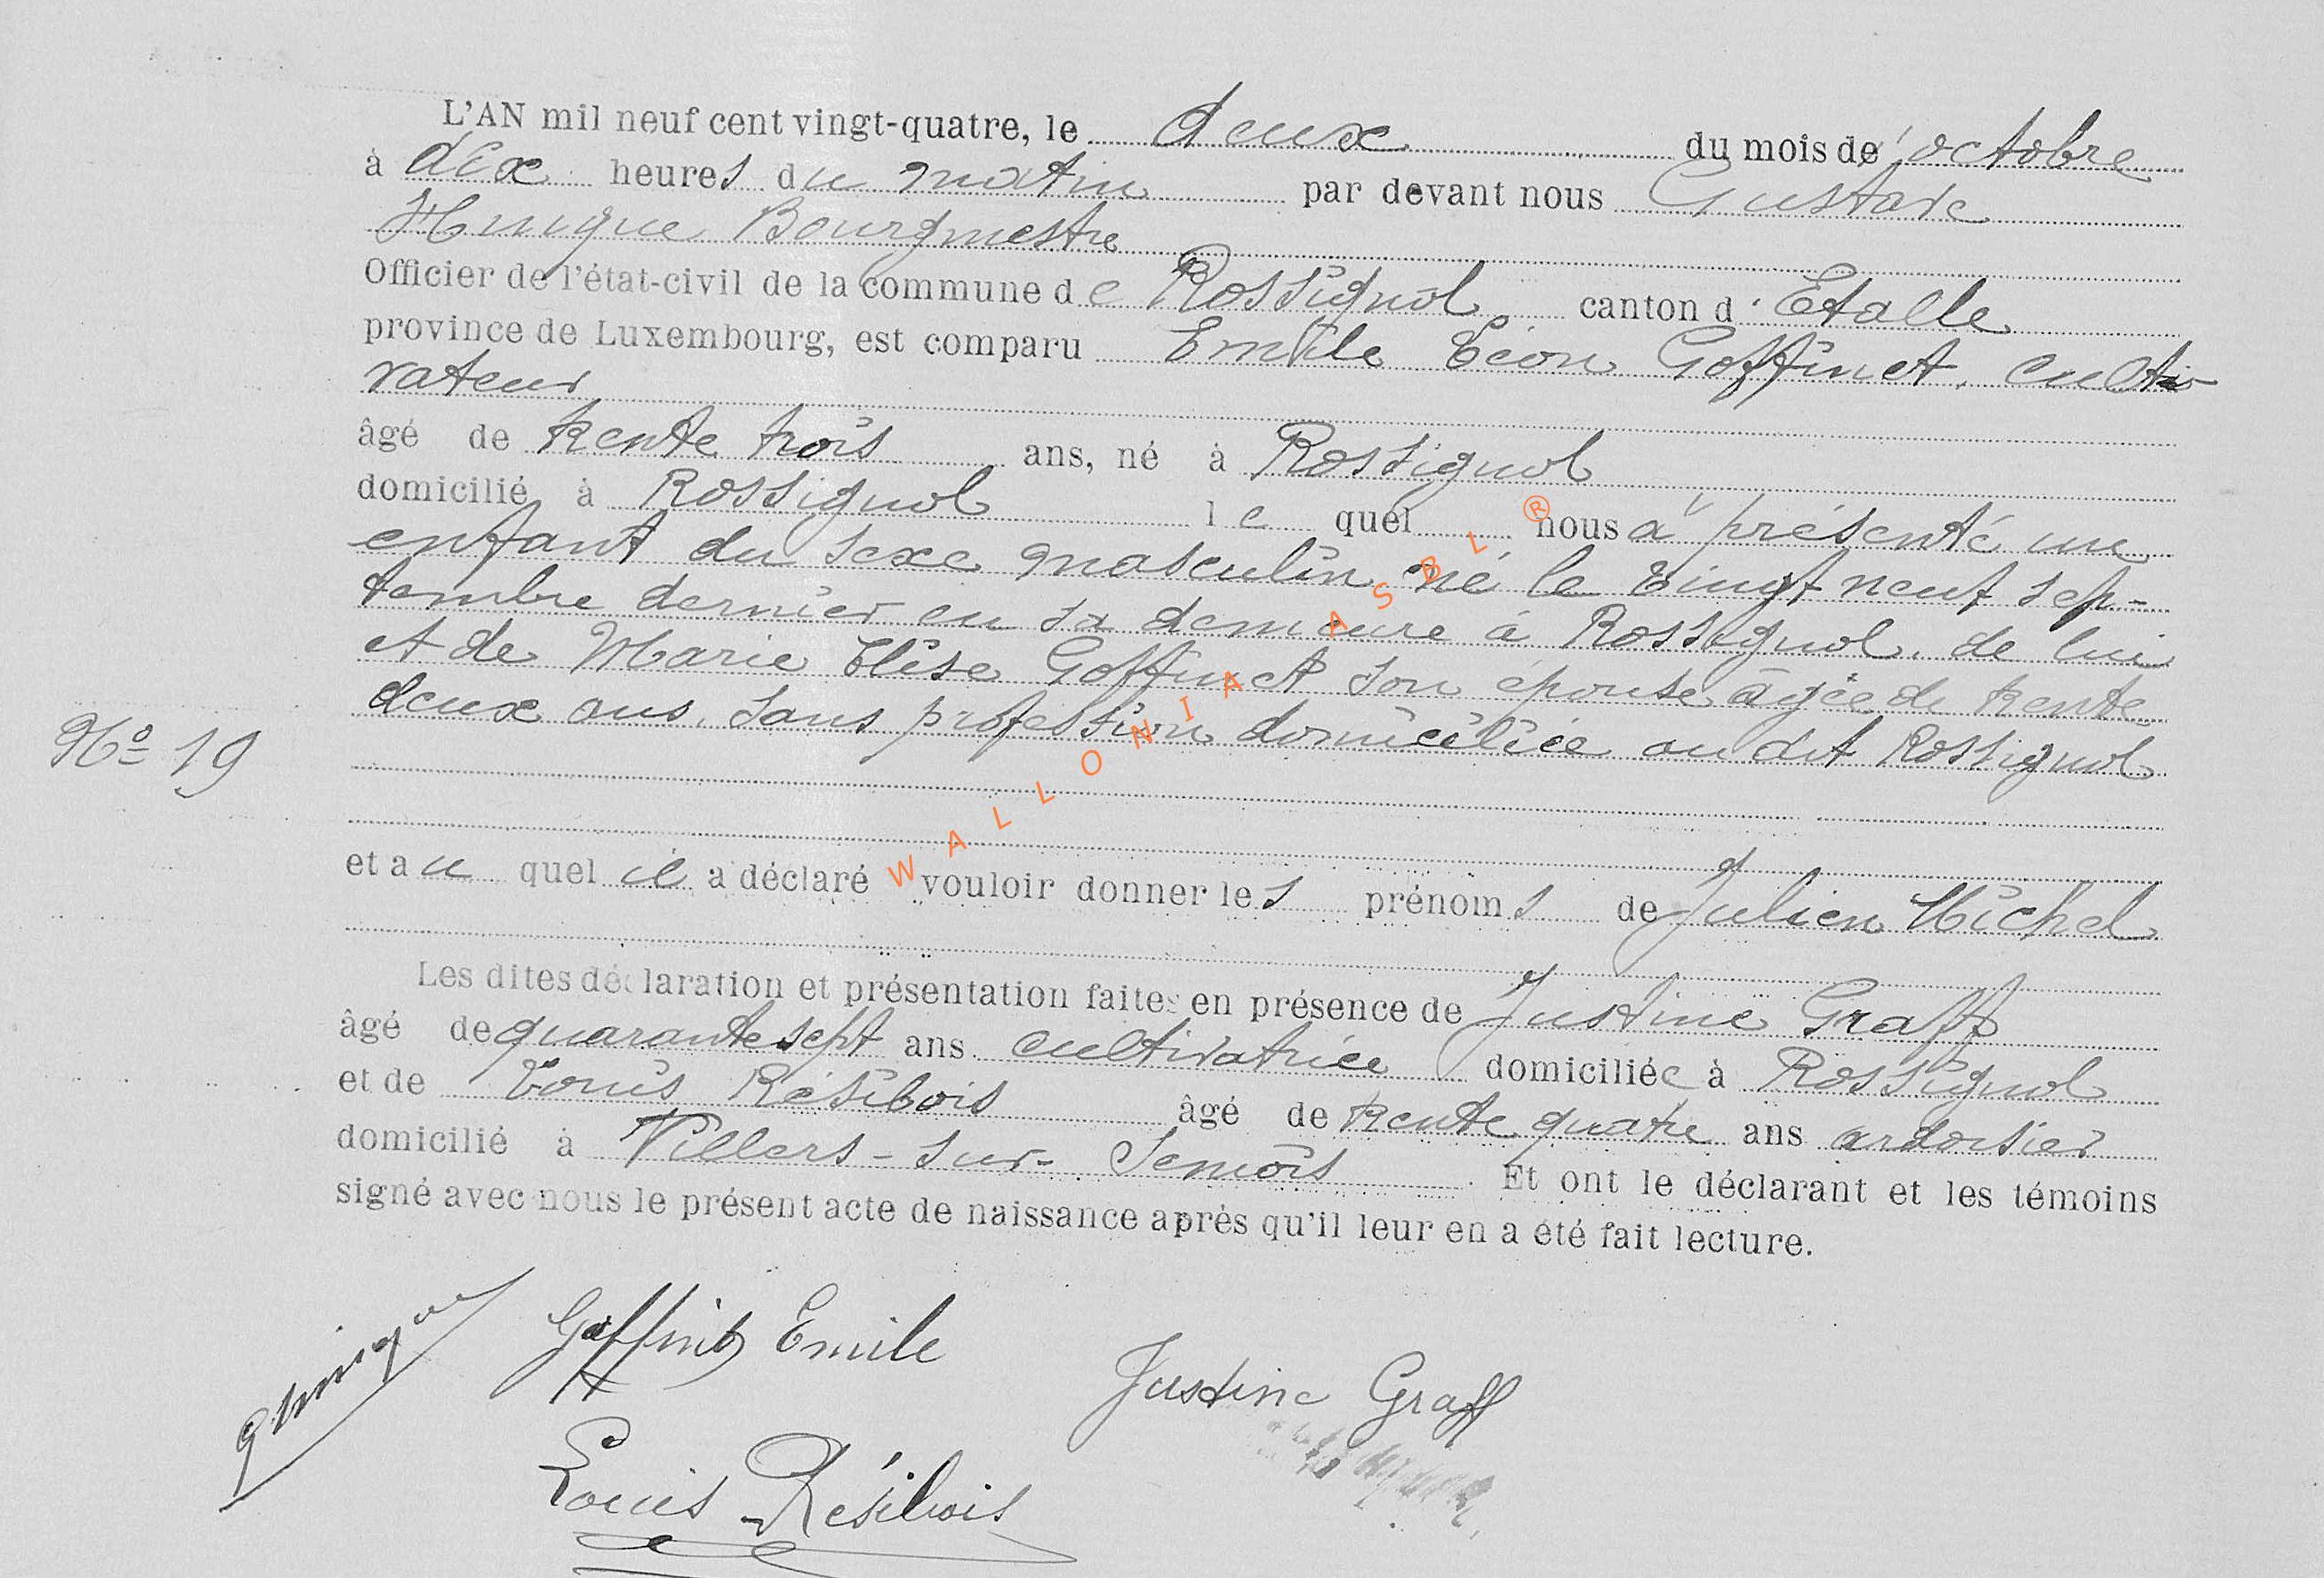 L'AN mil neuf cent vingt-quatre, le deux du mois d'octobre
à dix heures du matin par devant nous Gustave
Hunique Bourgmestre
Officier de l'état-civil de la commune de Rossignol canton d'Etalle
province de Luxembourg, est comparu Emile Léon Goffinet, culti
vateur
âgé de trente trois ans, né à Rossignol
domicilié à Rossignol lequel nous a présenté un
enfant du sexe masculin né le vingt neuf sep-
tembre dernier en sa demeure à Rossignol, de lui
et de Marie Elise Goffinet son épouse âgée de trente
deux ans, sans profession domiciliée au dit Rossignol
N° 19
et au quel il a déclaré vouloir donner les prénoms de Julien Michel
Les dites déclaration et présentation faites en présence de Justine Graff
âgé de quarante sept ans cultivatrice domiciliée à Rossignol
et de Louis Résibois âgé de trente quatre ans ardoisier
domicilié à Villers-sur-Semois. Et ont le déclarant et les témoins
signé avec nous le présent acte de naissance après qu'il leur en a été fait lecture.
Goffinet Emile
Justine Graff
Louis Résibois
WALLONIA ASBL ®